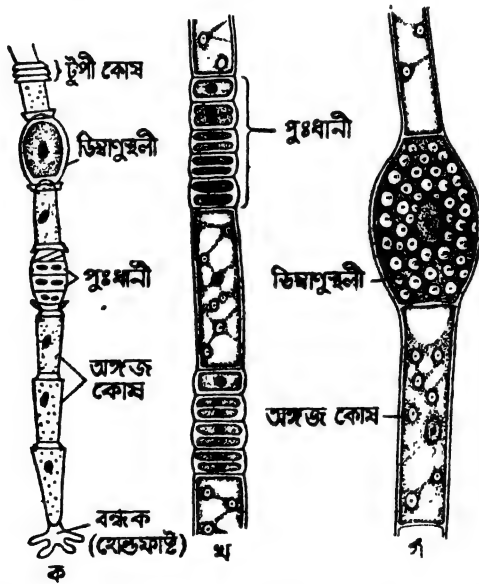 টুপী কোষ
ডিম্বাণুস্থলী
পুংধানী
অঙ্গজ কোষ
বন্ধক
(হোল্ডফাষ্ট)
ক
পুংধানী
খ
ডিম্বাণুস্থলী
অঙ্গজ কোষ
গ